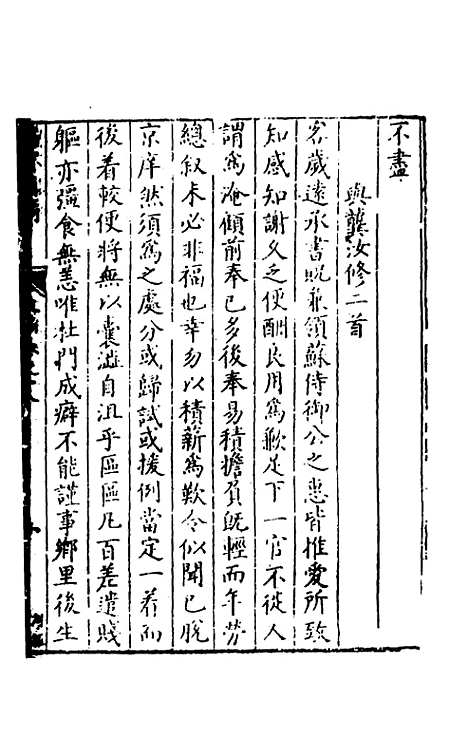 不盡
與龔汝修二首
客歲遠承書貺兼領蘇侍御公之惠皆推愛所致
知感知謝久乏便酬良用爲歉足下一官不從人
謂爲淹顧前奉已多後奉易積擔負旣輕而年勞
總叙未必非福也幸勿以積薪爲歎令似聞已脫
京庠然須爲之處分或歸試或援例當定一着而
後着較便將無以囊澁自沮乎區區凡百差遣賤
軀亦彊食無恙唯杜門成癖不能謹事鄉里後生